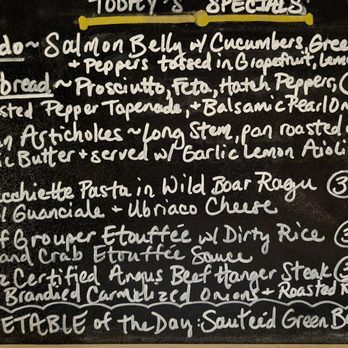 TODAY'S SPECIALS
do ~ Salmon Belly w/ Cucumbers, Gree
+ Peppers tossed in Grapefruit, Lemo
bread ~ Prosciutto, Feta, Hatch Peppers, (
sted Pepper Tapenade, + Balsamic Pearl On
an Artichokes ~ Long Stem, pan roasted
ic Butter + served w/ Garlic Lemon Aioli
cchiette Pasta in Wild Boar Ragu (3
Guanciale + Ubriaco Cheese
f Grouper Etouffée w/ Dirty Rice (3
and Crab Etouffée Sauce
z Certified Angus Beef Hanger Steak (3
Brandied Carmelized Onions + Roasted R
ETABLE of the Day: Sautee'd Green Be